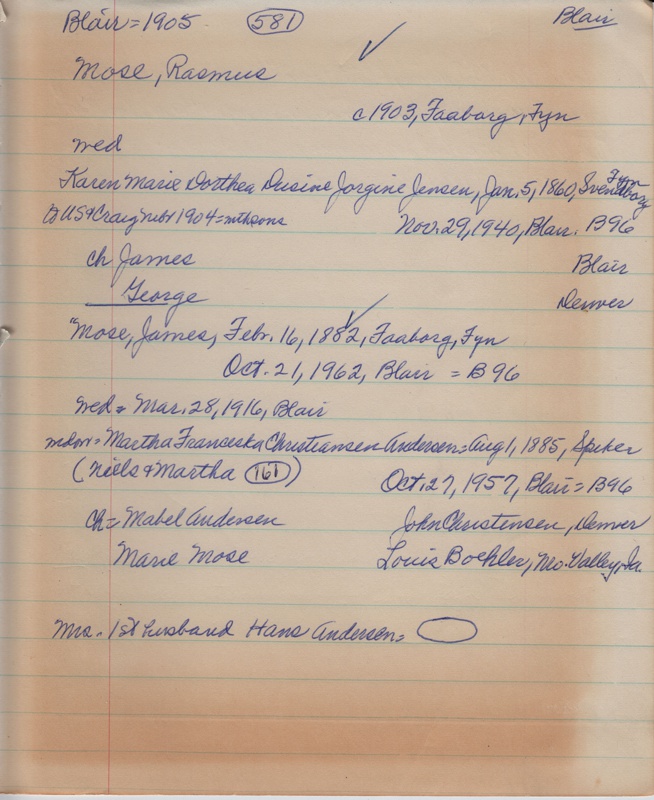 Blair = 1905 581 Blair
Mose, Rasmus
c 1903, Faaborg, Fyn
wed
Karen Marie Dorthea Dusine Jorgine Jensen, Jan. 5, 1860, Svendborg Fyn
to US & Craig Nebr 1904 = with sons Nov. 29, 1940, Blair. B96
ch James Blair
George Denver
"Mose, James, Febr. 16, 1882, Faaborg, Fyn
Oct. 21, 1962, Blair = B96
wed = Mar. 28, 1916, Blair
Martha Franceska Christiansen Andersen = Aug 1, 1885, Spiker
(Niels & Martha 161) Oct. 27, 1957, Blair = B96
ch = Mabel Andersen John Christensen, Denver
Marie Mose Louis Boehler, Mo. Valley, Ia.
Mrs. 1st husband Hans Andersen =